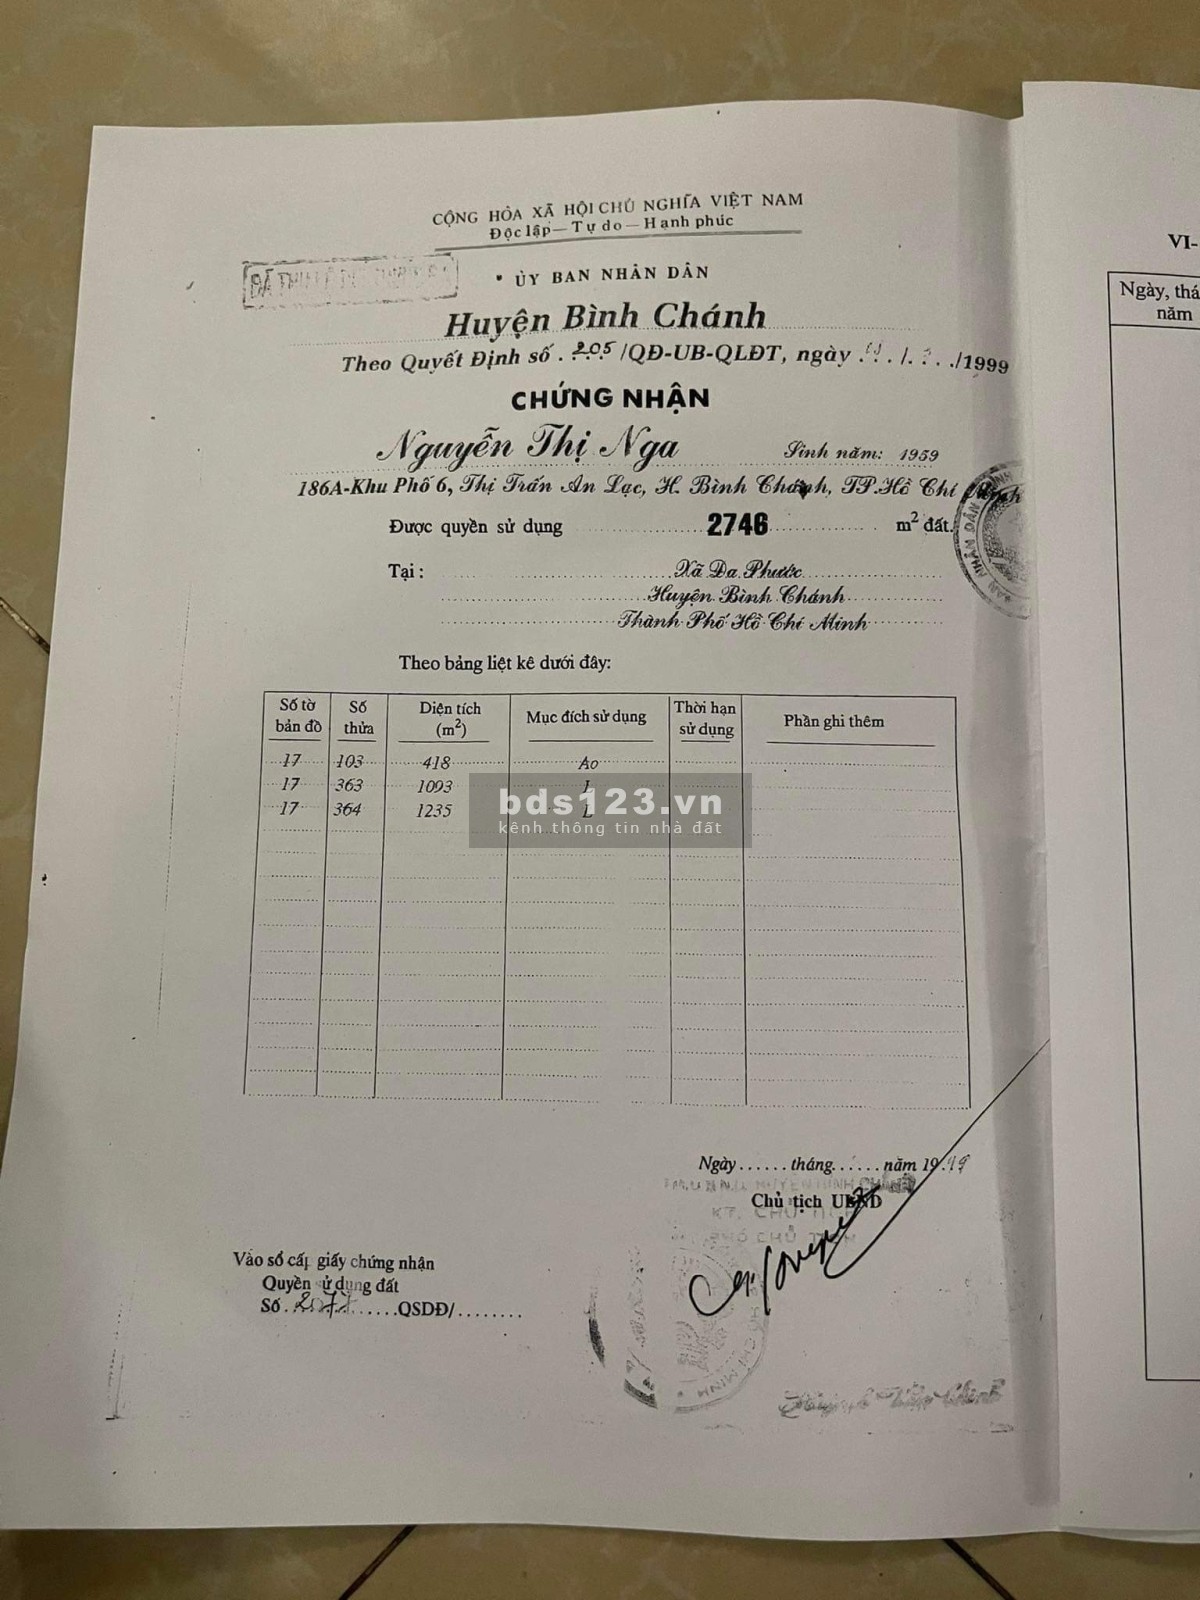 CỘNG HÒA XÃ HỘI CHỦ NGHĨA VIỆT NAM
Độc lập — Tự do — Hạnh phúc
ỦY BAN NHÂN DÂN
Huyện Bình Chánh
Theo Quyết Định số . 205 /QĐ-UB-QLĐT, ngày . . . /. . . ./1999
CHỨNG NHẬN
Nguyễn Thị Nga Sinh năm: 1959
186A-Khu Phố 6, Thị Trấn An Lạc, H. Bình Chánh, TP.Hồ Chí Minh
Được quyền sử dụng 2746 m² đất.
Tại : Xã Đa Phước
Huyện Bình Chánh
Thành Phố Hồ Chí Minh
Theo bảng liệt kê dưới đây:
Số tờ bản đồ Số thửa Diện tích (m²) Mục đích sử dụng Thời hạn sử dụng Phần ghi thêm
17 103 418 Ao
17 363 1093 L
17 364 1235 L
bds123.vn
kênh thông tin nhà đất
Ngày ...... tháng ...... năm 1999
Chủ tịch UBND
KT. CHỦ TỊCH
PHÓ CHỦ TỊCH
Vào sổ cấp giấy chứng nhận
Quyền sử dụng đất
Số ......QSDĐ/........
VI-
Ngày, thá
năm